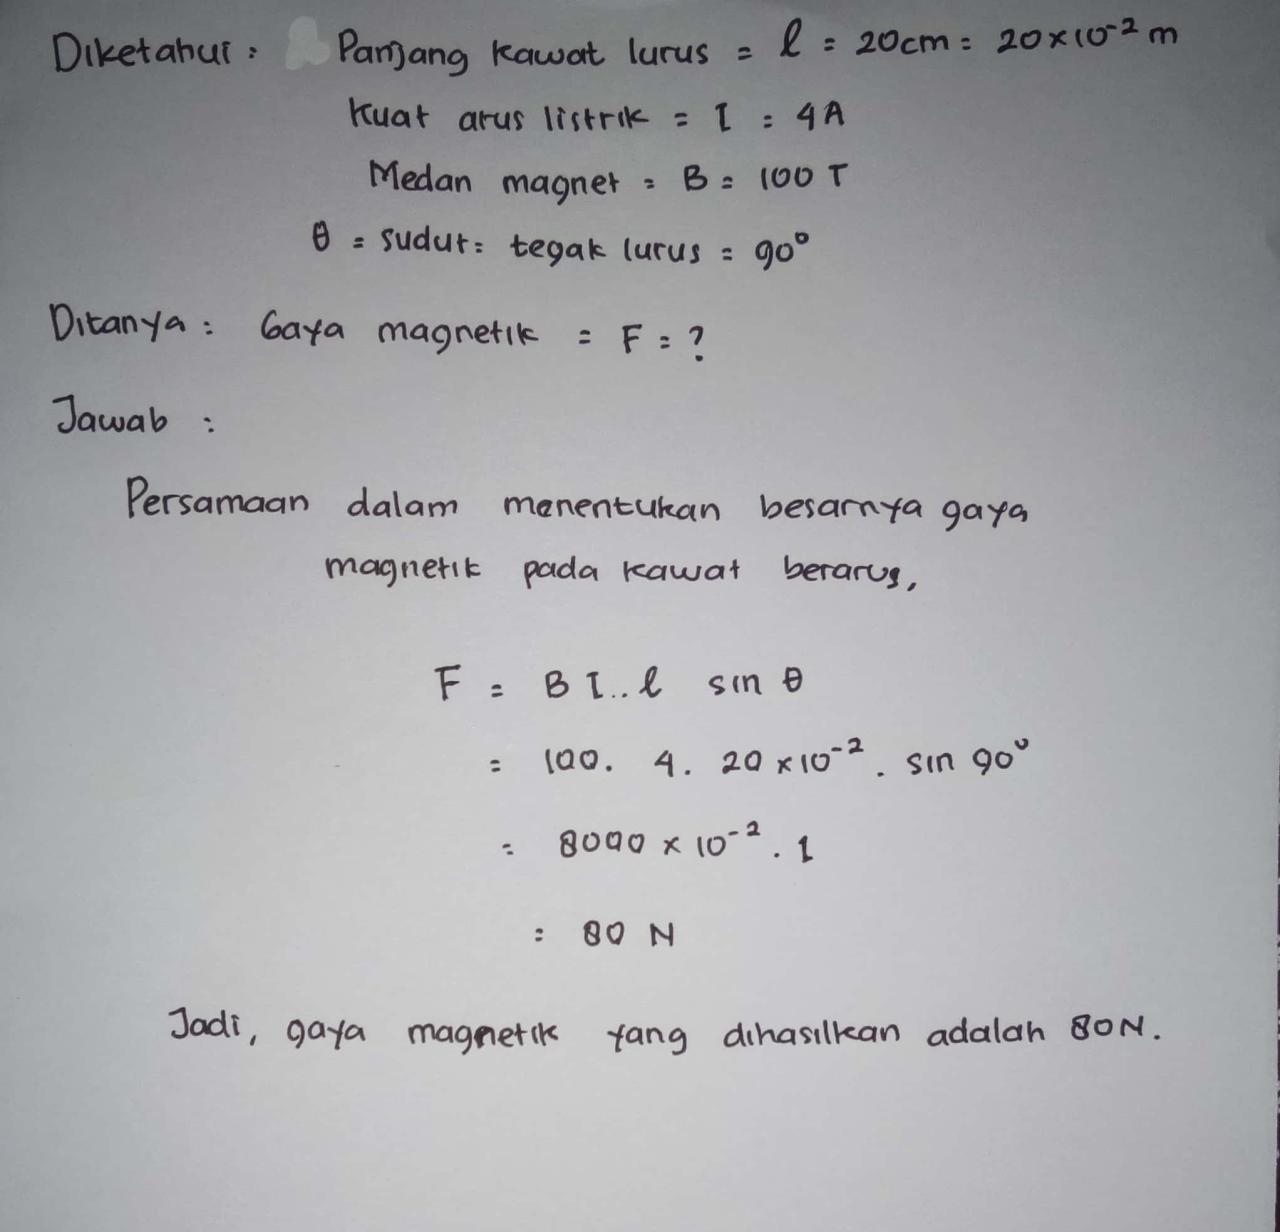 Diketahui : Panjang kawat lurus = l = 20cm = 20×10⁻² m
Kuat arus listrik = I = 4A
Medan magnet = B = 100 T
θ = sudut = tegak lurus = 90°
Ditanya : Gaya magnetik = F = ?
Jawab :
Persamaan dalam menentukan besarnya gaya
magnetik pada kawat berarus,
F = B I..l sin θ
= 100. 4. 20 × 10⁻² . sin 90°
= 8000 × 10⁻² . 1
= 80 N
Jadi, gaya magnetik yang dihasilkan adalah 80N.